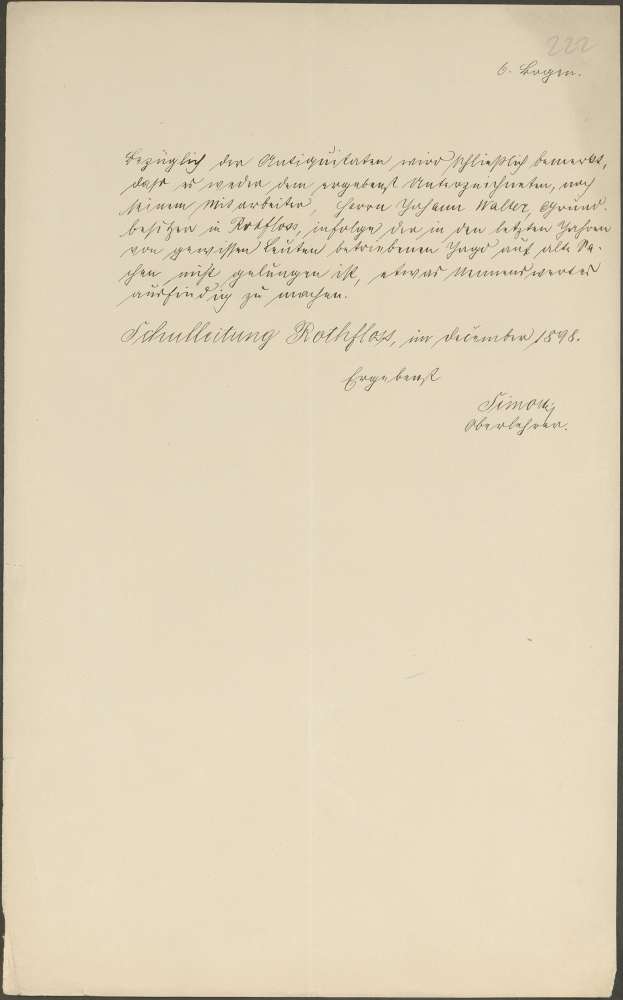 222
6. Bogen.
Bezüglich der Antiquitäten wird schließlich bemerkt,
dass es weder dem ergebenst Unterzeichneten, noch
seinem Mitarbeiter, Herrn Johann Walter, Grund-
besitzer in Rothfloss, infolge der in den letzten Jahren
von gewissen Leuten betriebenen Jagd auf alte Sa-
chen nicht gelungen ist, etwas Nennenswertes
ausfindig zu machen.
Schulleitung Rothfloss, im December 1898.
Ergebenst
Simon,
Oberlehrer.